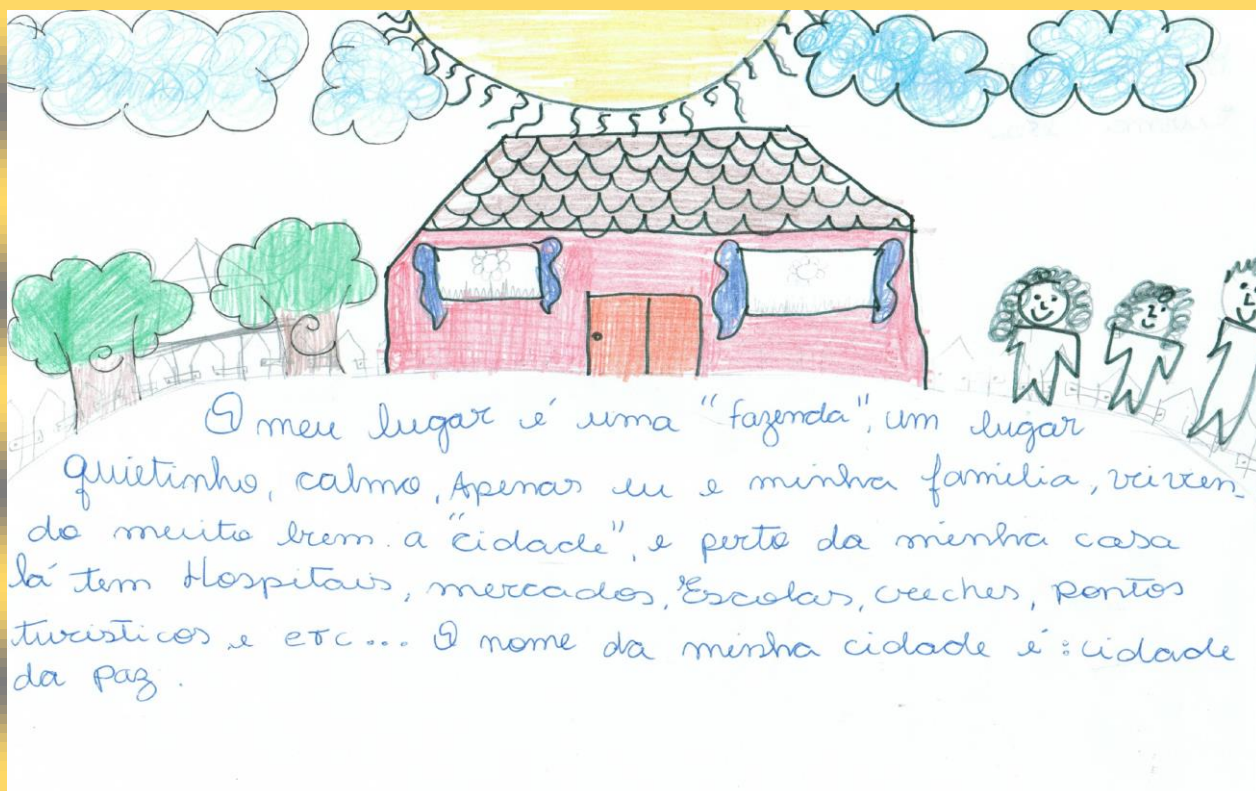 O meu lugar é uma "fazenda", um lugar
quietinho, calmo, Apenas eu e minha família, viven-
do muito bem. a "cidade", e perto da minha casa
lá tem Hospitais, mercados, Escolas, creches, pontos
turisticos e etc... O nome da minha cidade é: cidade
da paz.